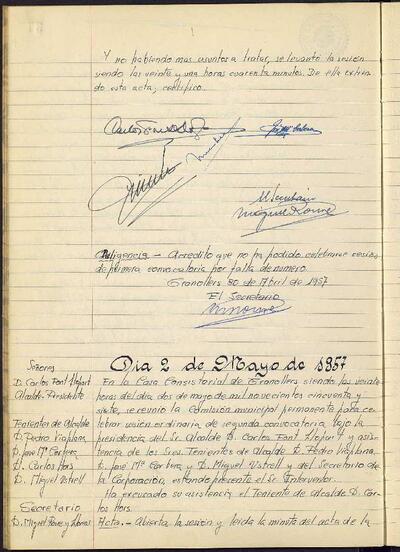 Y no habiendo mas asuntos a tratar, se levantó la sesión
siendo las veinte y una horas cuarenta minutos. De ella extien-
do esta acta, certifico.
Diligencia - Acredito que no ha podido celebrarse sesión
de primera convocatoria por falta de número
Granollers 30 de Abril de 1957
El Secretario
Día 2 de Mayo de 1957
Señores
D. Carlos Font Llopart
Alcalde Presidente
Tenientes de Alcalde
D. Pedro Viaplana
D. José Mª Cortera
D. Carlos Hors
D. Miguel Ustrell
Secretario
D. Miguel
En la Casa Consistorial de Granollers siendo las veinte
horas del dia dos de mayo de mil novecientos cincuenta y
siete, se reunió la Comisión municipal permanente para ce-
lebrar sesión ordinaria de segunda convocatoria, bajo la
presidencia del Sr. Alcalde D. Carlos Font Llopart y asis-
tencia de los Sres. Tenientes de Alcalde D. Pedro Viaplana,
D. José Mª Cortera y D. Miguel Ustrell y del Secretario de
la Corporación, estando presente el Sr. Interventor.
Ha excusado su asistencia el Teniente de Alcalde D. Car-
los Hors.
Acta.- Abierta la sesión y leida la minuta del acta de la